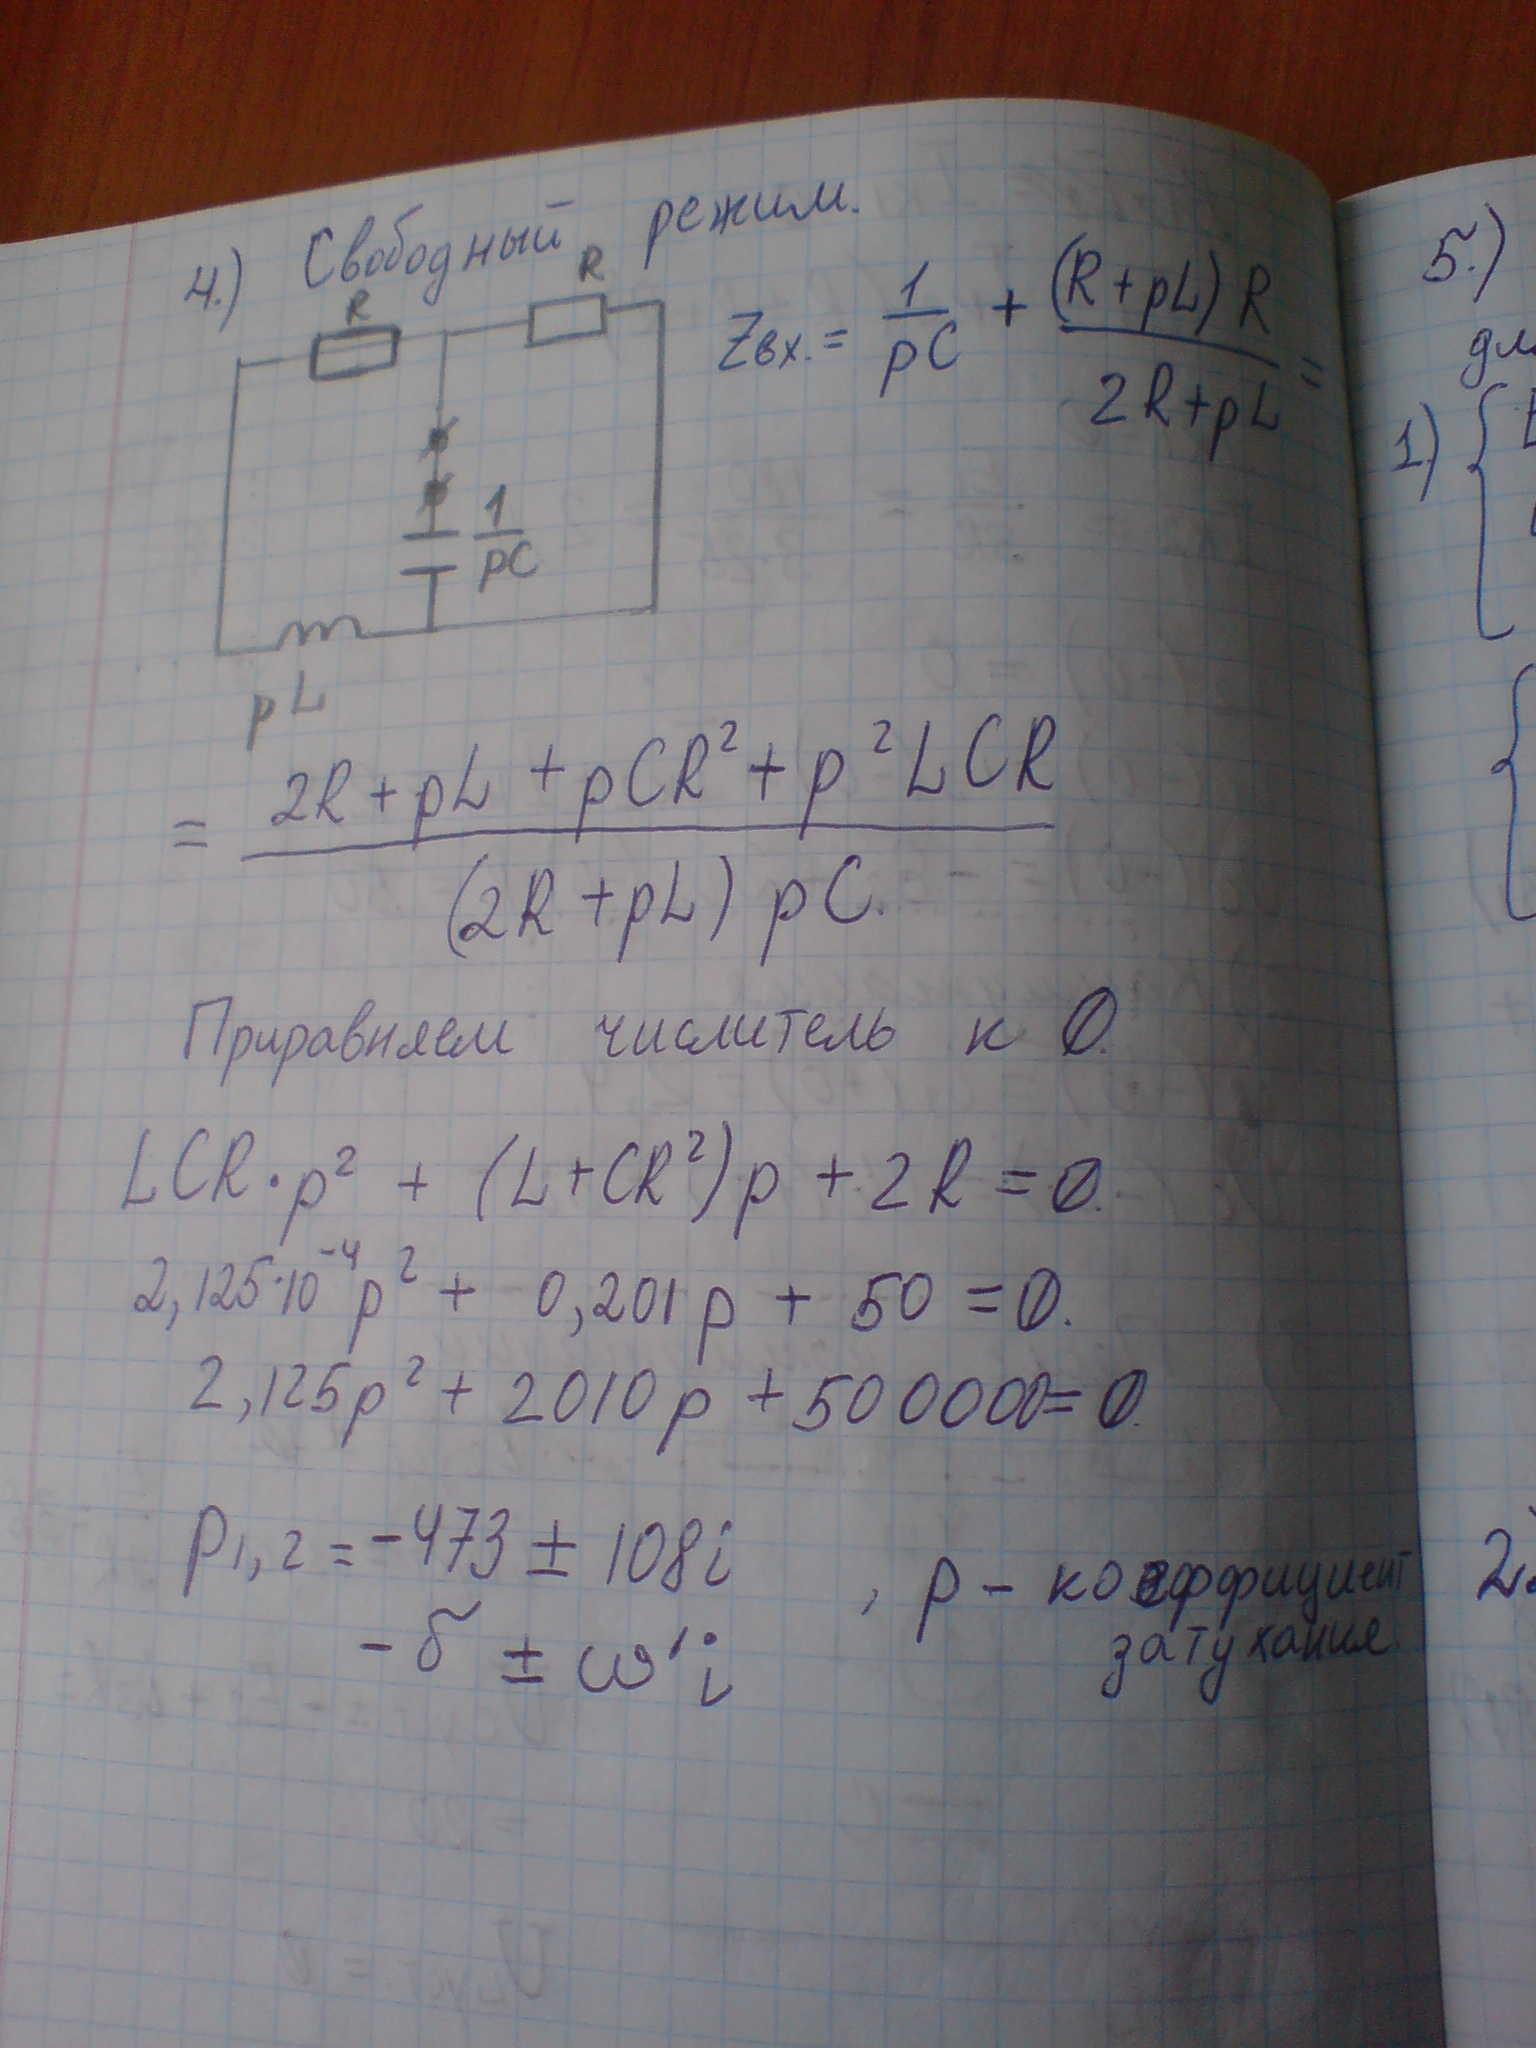 4.) Свободный режим.
R
R
Zвх. = 1/pC + (R+pL)R/2R+pL =
1/pC
pL
= 2R+pL+pCR²+p²LCR/(2R+pL)pC.
Приравняем числитель к 0.
LCR·p² + (L+CR²)p + 2R = 0.
2,125·10⁻⁴p² + 0,201p + 50 = 0.
2,125p² + 2010p + 500000 = 0.
p₁,₂ = -473 ± 108i , p - коэффициент
затухания.
-δ ± ω'i
5.)
1.)